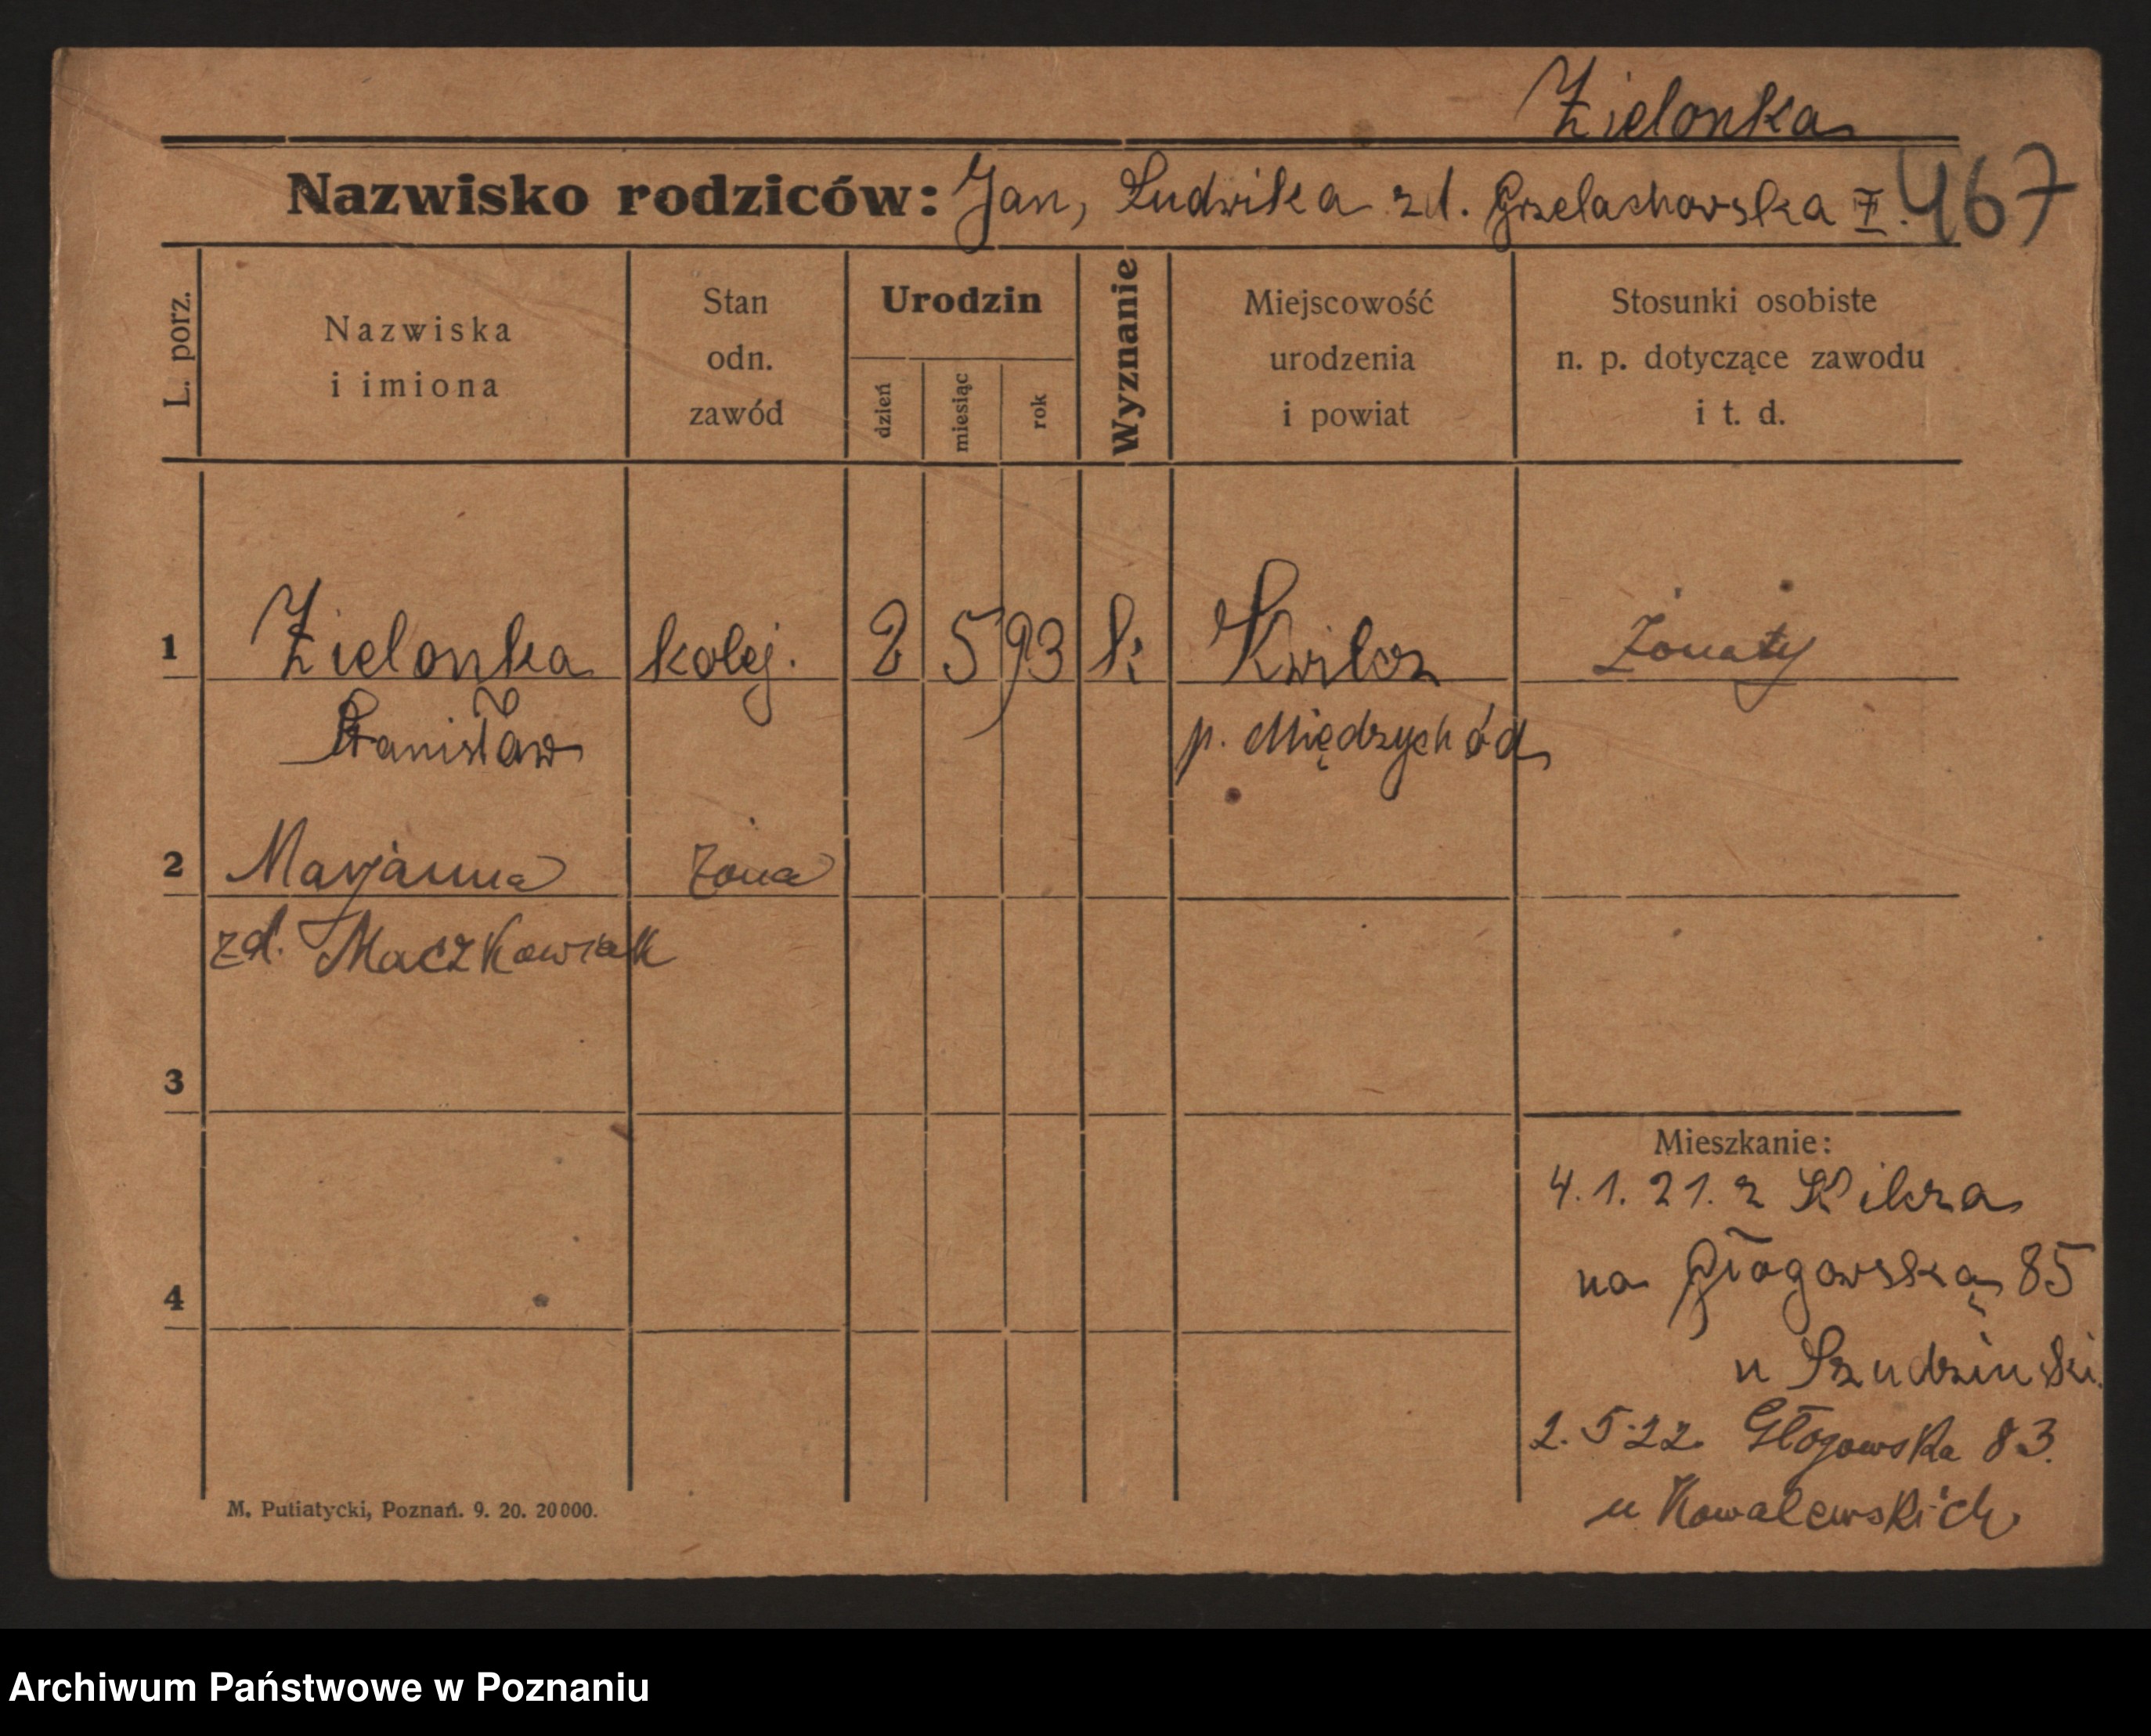 Zielonka
Nazwisko rodziców: Jan, Ludwika zd. Grzelachowska 467
L. porz.
Nazwiska
i imiona
Stan
odn.
zawód
Urodzin
dzień
miesiąc
rok
Wyznanie
Miejscowość
urodzenia
i powiat
Stosunki osobiste
n. p. dotyczące zawodu
i t. d.
1 Zielonka kolej. 2 5 93 k Kwilcz Żonaty
Stanisław p. Międzychód
2 Marjanna żona
zd. Maczkowiak
3
Mieszkanie:
4.1.21. z
na Głogowską 85
4
u Szudzinski.
2.5.22 Głogowska 83.
u Kowalewskich
M. Putiatycki, Poznań. 9. 20. 20000.
Archiwum Państwowe w Poznaniu